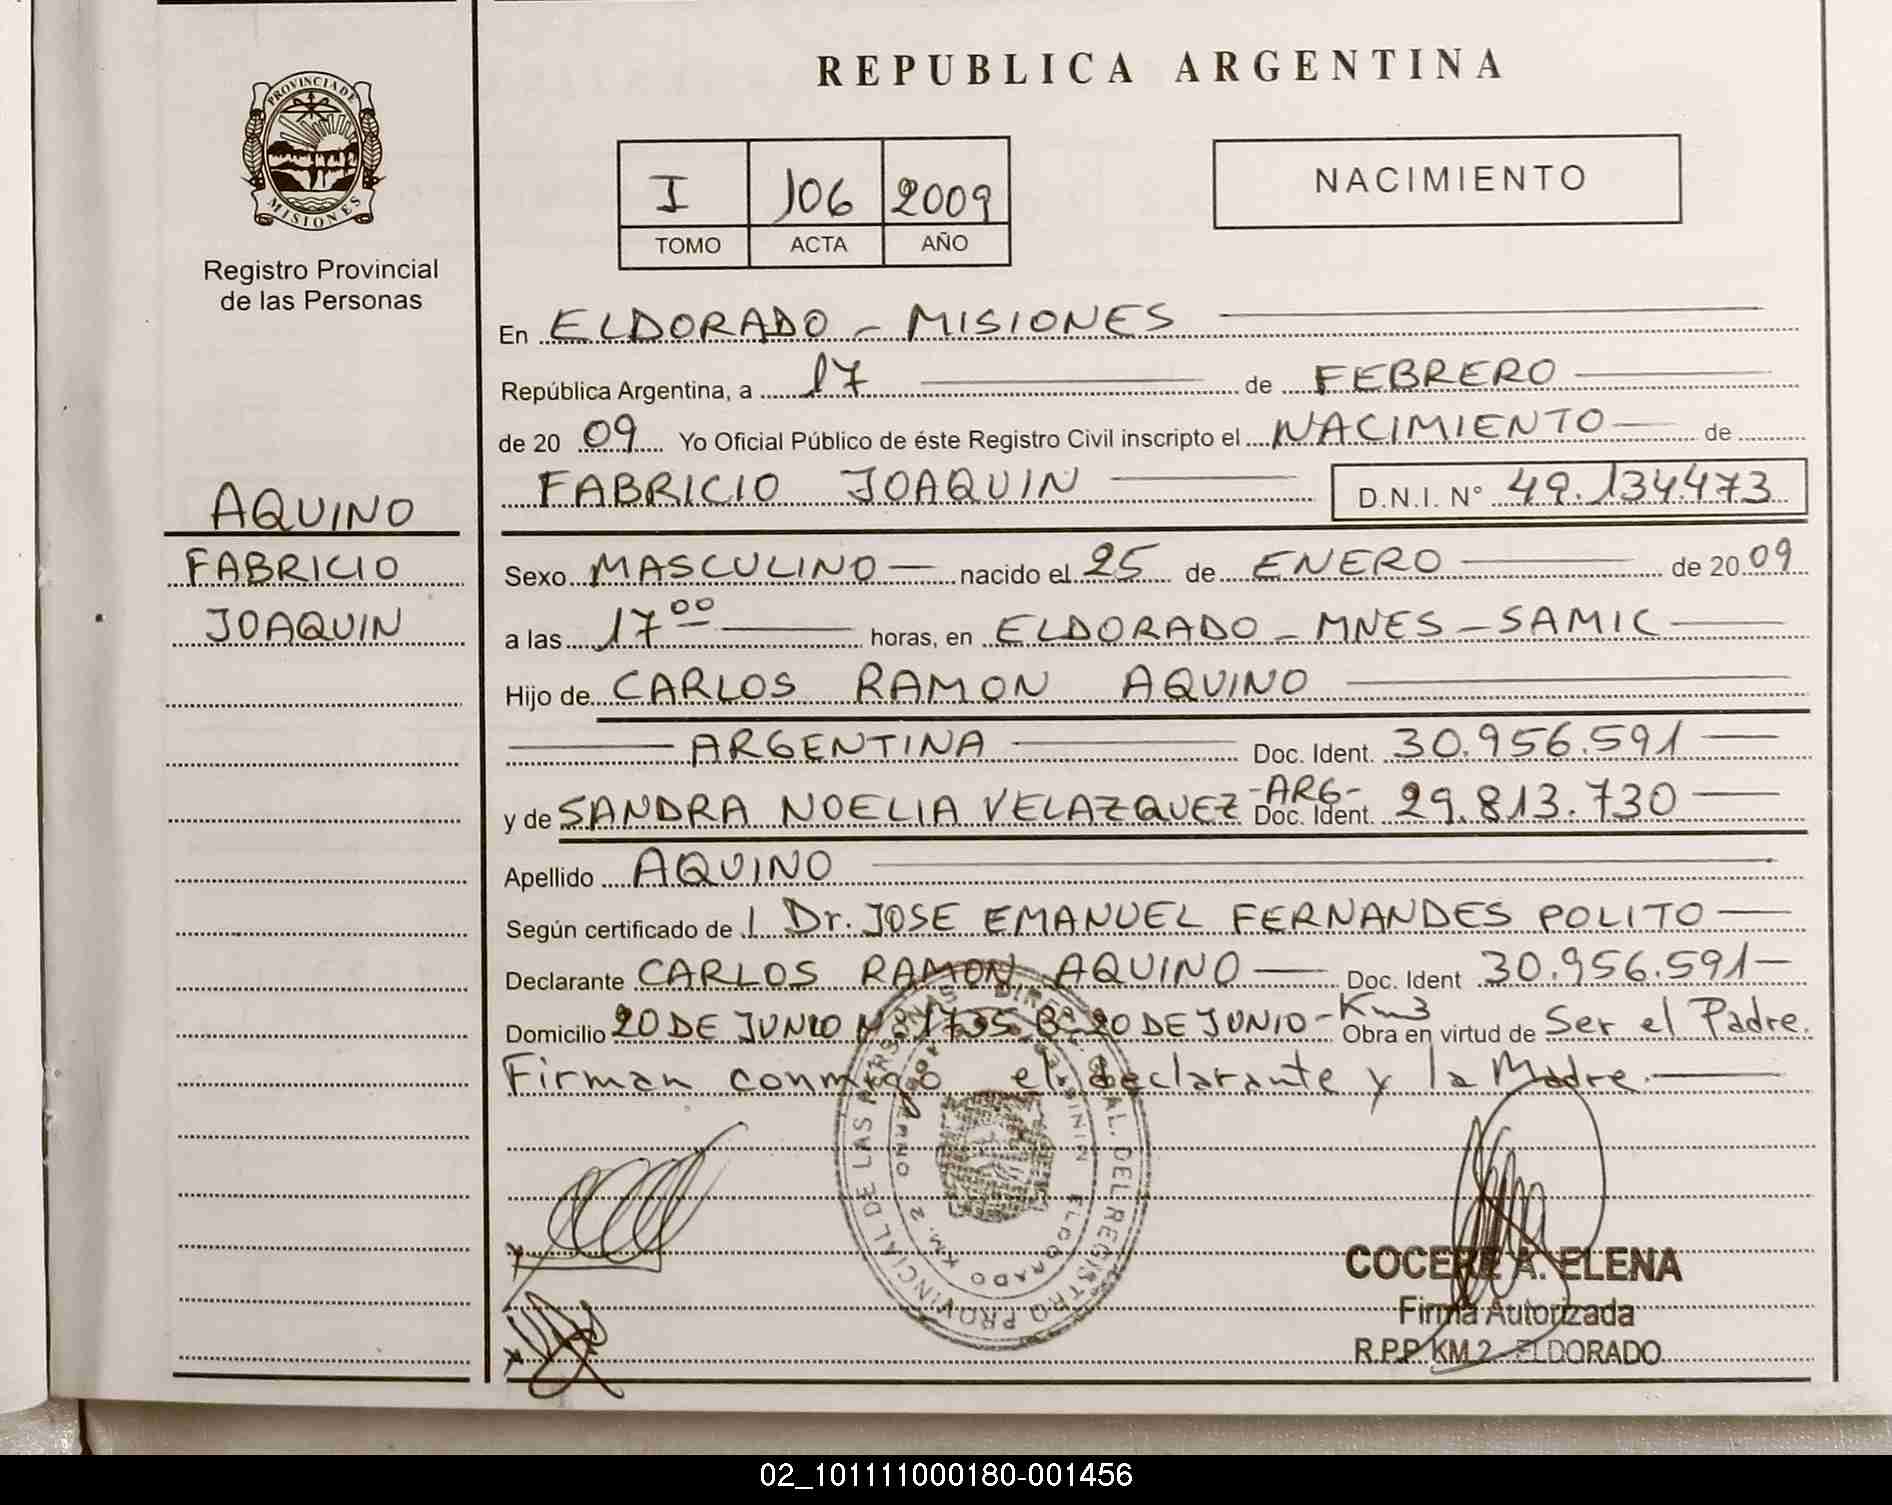 PROVINCIA DE
MISIONES
Registro Provincial
de las Personas
AQUINO
FABRICIO
JOAQUIN
REPUBLICA ARGENTINA
I 106 2009
TOMO ACTA AÑO
NACIMIENTO
En ELDORADO - MISIONES
República Argentina, a 17 de FEBRERO
de 20 09 Yo Oficial Público de éste Registro Civil inscripto el NACIMIENTO de
FABRICIO JOAQUIN D.N.I. N° 49.134.473
Sexo MASCULINO nacido el 25 de ENERO de 20 09
a las 17 00 horas, en ELDORADO - MNES - SAMIC
Hijo de CARLOS RAMON AQUINO
ARGENTINA Doc. Ident. 30.956.591
y de SANDRA NOELIA VELAZQUEZ -ARG- Doc. Ident. 29.813.730
Apellido AQUINO
Según certificado de l Dr. JOSE EMANUEL FERNANDES POLITO
Declarante CARLOS RAMON AQUINO Doc. Ident 30.956.591
Domicilio 20 DE JUNIO Nº 1735 Bº 20 DE JUNIO - Km3 Obra en virtud de Ser el Padre.
Firman conmigo el declarante y la Madre.
DIREC. GRAL. DEL REGISTRO PROVINCIAL DE LAS PERSONAS
ELDORADO KM. 2
COCERE A. ELENA
Firma Autorizada
R.P.P. KM.2 - ELDORADO
02_101111000180-001456